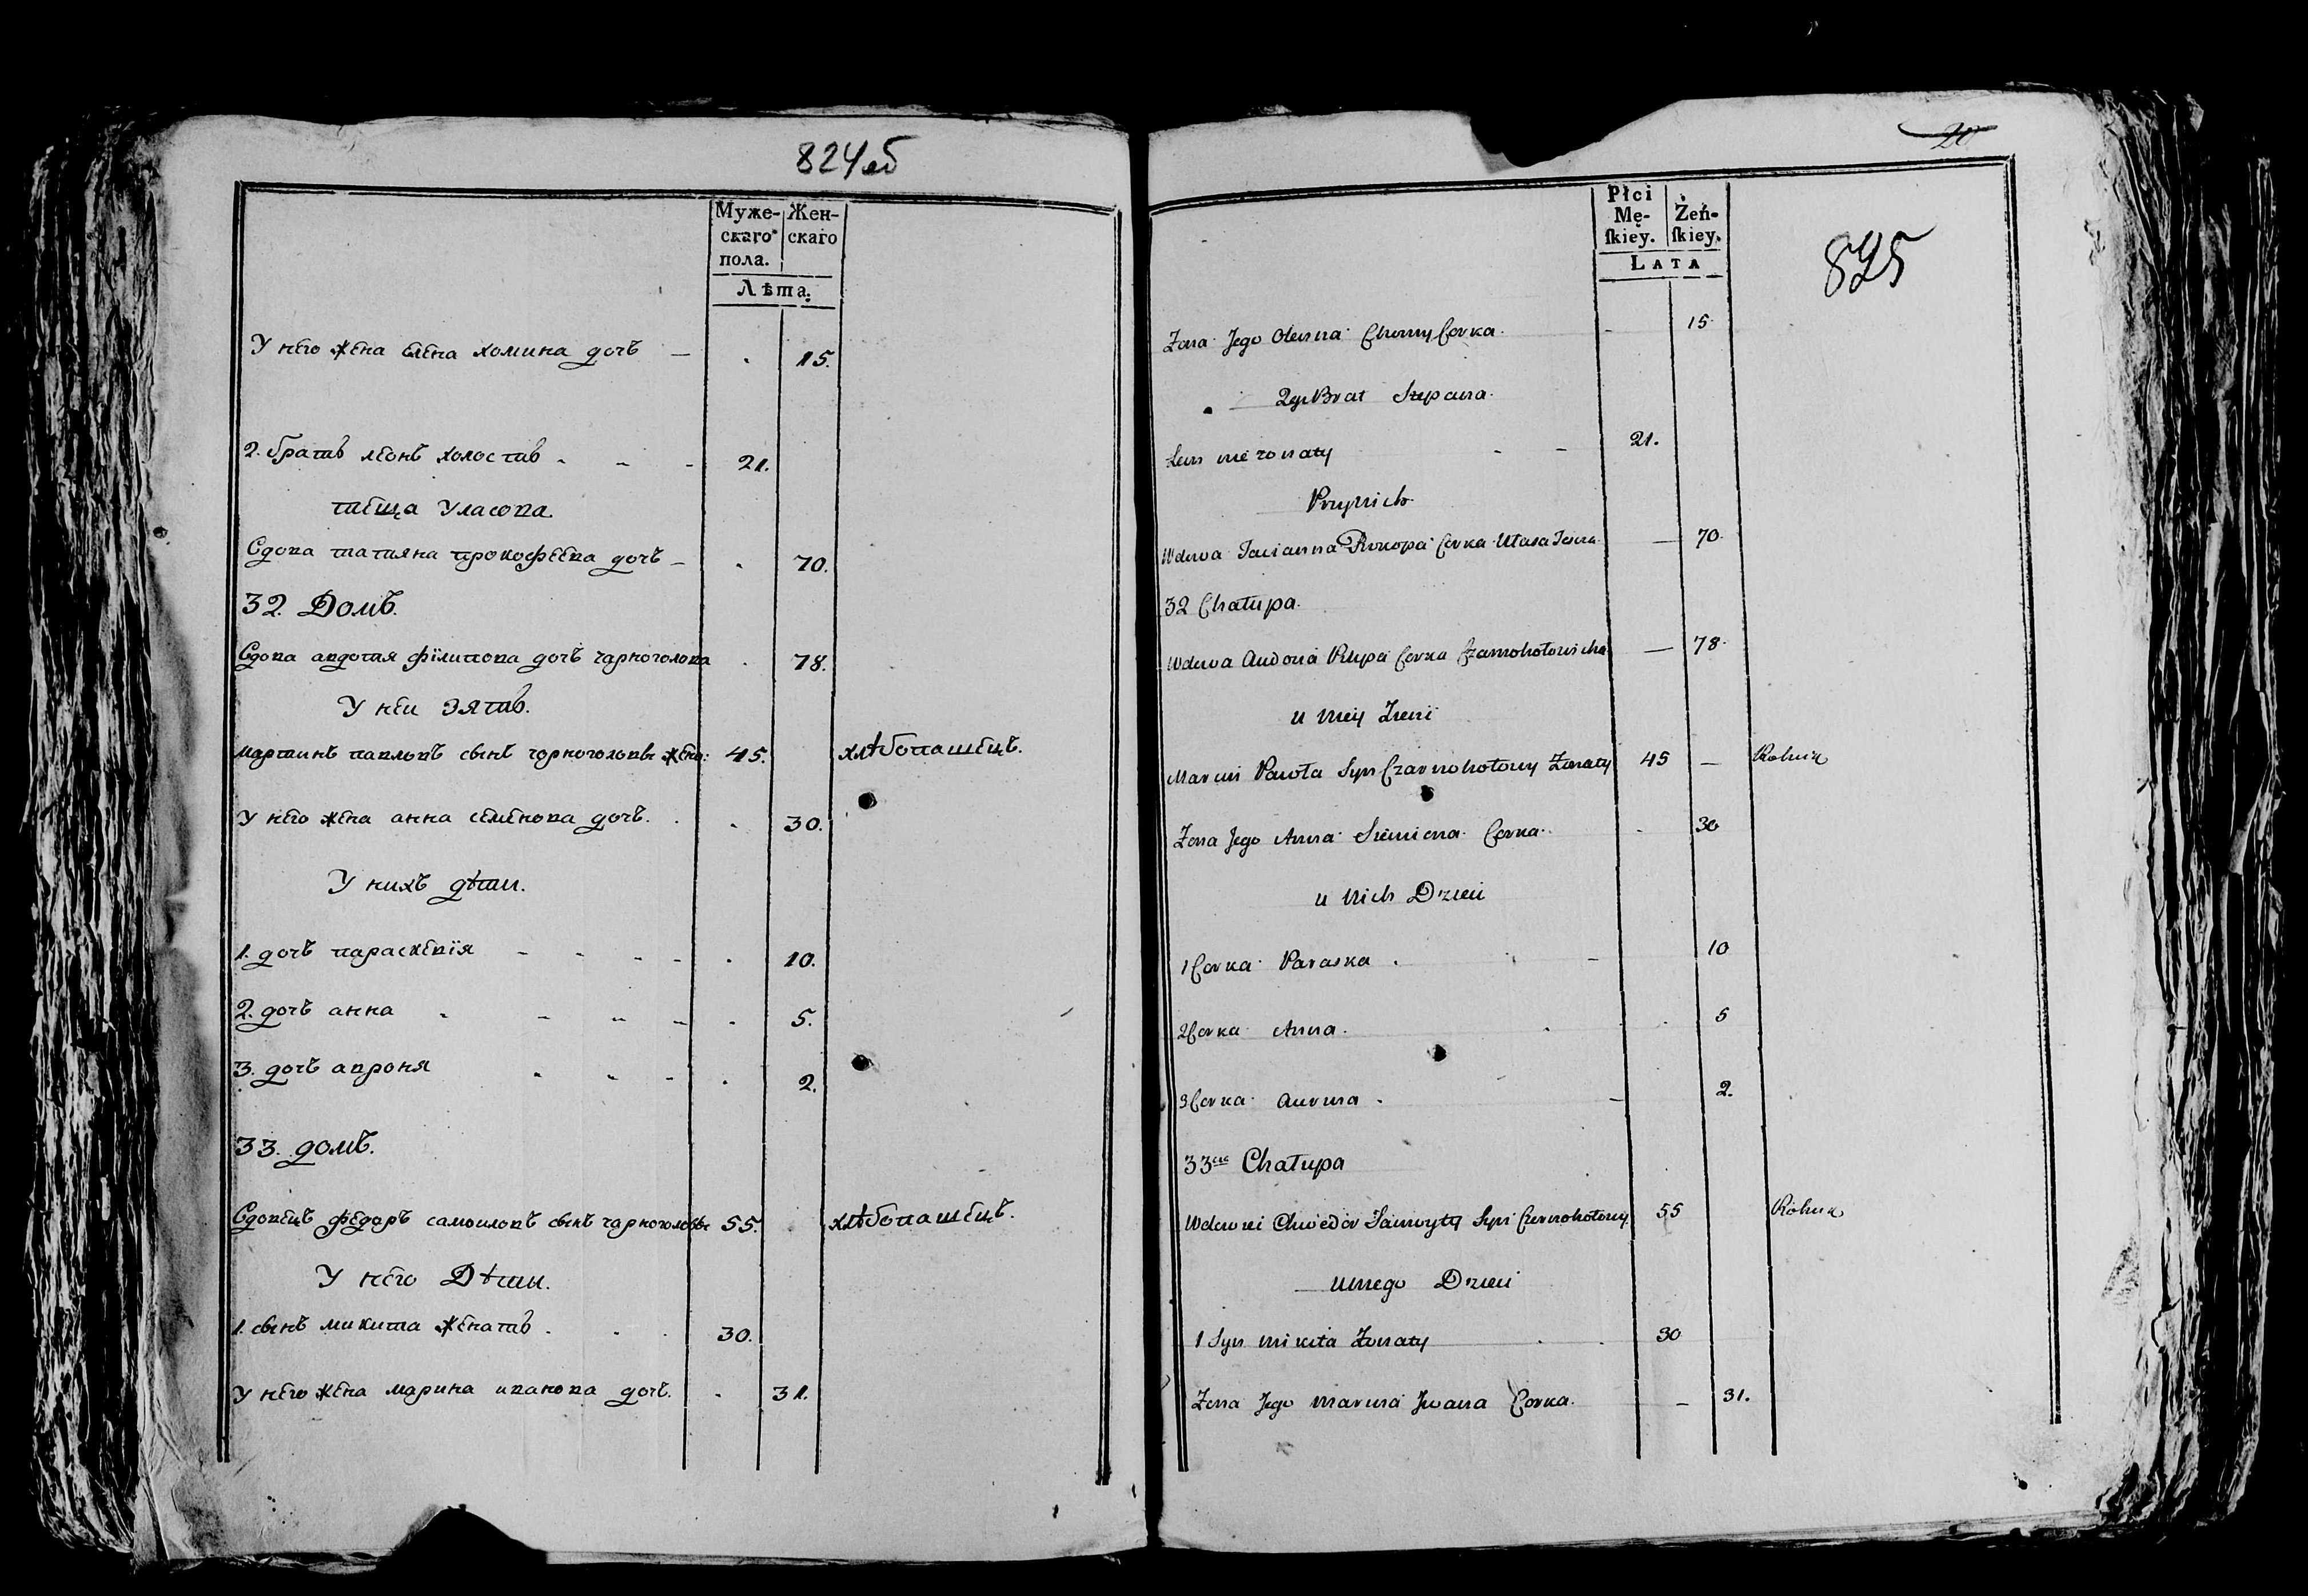 824об
Муже- Жен-
скаго скаго
пола.
Лѣта.
У него жена елена хомина дочъ - . 15.
2. братъ леонъ холостъ . - - 21.
теща уласова
Вдова татяна прокофеева дочъ - . 70.
32. Домъ.
Вдова авдотя филипова дочъ чарноголова . 78.
У неи зятъ.
мартинъ павловъ сынъ чорноголовы жена: 45. хлѣбопашецъ.
У него жена анна семенова дочъ. . . 30.
У нихъ дѣти.
1. дочъ параскевія - - - - . 10.
2. дочъ анна . - - - . 5.
3. дочъ апроня . - - . 2.
33. домъ.
Вдовецъ федоръ самоиловъ сынъ чарноголовы 55. хлѣбопашецъ.
У него Дѣти.
1. сынъ микита женатъ . . . 30.
У него жена марина иванова дочъ. . 31.
20
Płci
Mę- Żeń-
ſkiey. ſkiey.
LATA
825
Zona Jego Olenna Chomy Corka. - 15.
2gi Brat Stepana.
Leon nie zonaty - - 21.
Przynich
Wdowa Tacianna Prokopa Corka Ułasa Tescza — 70.
32 Chałupa.
Wdowa Audocia Pilipa Corka Czarnohołowicha — 78.
u niey Zienć
Marcin Pawła Syn Czarnohołowy Zonaty 45 — Rolnik
Zona Jego Anna Siemiona Corka. . 30
u nich Dzieci
1 Corka Paraska . - 10
2 Corka Anna. . . 5
3 Corka Aurina . - 2.
33cia Chałupa
Wdowiec Chwedor Samoyły Syn Czernohołowy 55 Rolnik
u niego Dzieci
1 Syn mikita Zonaty . . 30
Zona Jego marina Jwana Corka. - 31.